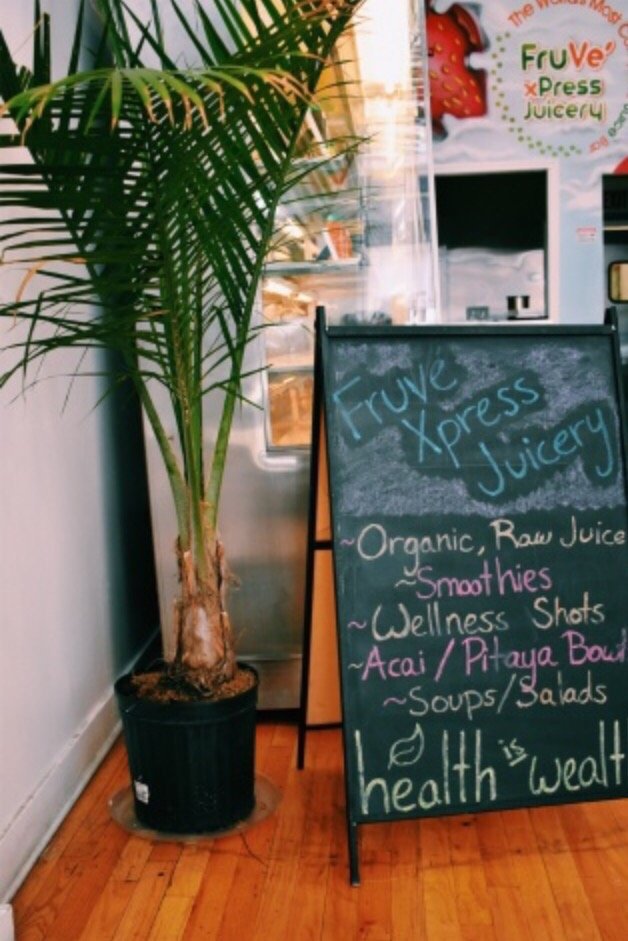 The World's Most
FruVe'
xPress
Juicery
Juice Bar
Fruvé
Xpress
Juicery
~Organic, Raw Juice
~Smoothies
~Wellness Shots
~Acai / Pitaya Bowl
~Soups/Salads
health is wealt